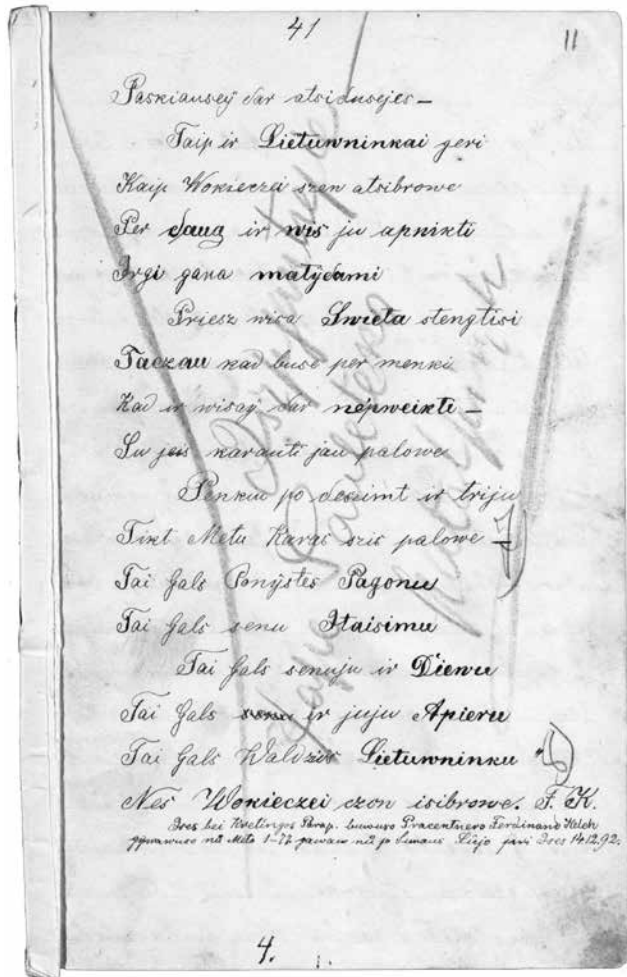 41
11
Paskiausey dar atsidusejes –
Taip ir Lietuwninkai geri
Kaip Wokieczei szen atsibrowe
Per daug ir wis ju apnikti
Irgi gana matydami
Priesz wisa Swieta stengtisi
Taczau kad buse per menki
Kad ir wisay dar nepweikti –
Su jeis karauti jau palowe
Penkiu po deszimt ir triju
Tikt Metu Karas szis palowe –
Tai Gals Ponystes Pagonu
Tai Gals senu Itaisimu
Tai Gals senuju ir Diewu
Tai Gals ir juju Apieru
Tai Gals Waldziōs Lietuwninku "
Nes Wokieczei czon isibrowe. F. K.
bei Kretingos Parap. buwuso Pracentnero Ferdinand Kelch
nů Meto 1-72 gawau nů jo Simaus 14.12.92.
4.
1.